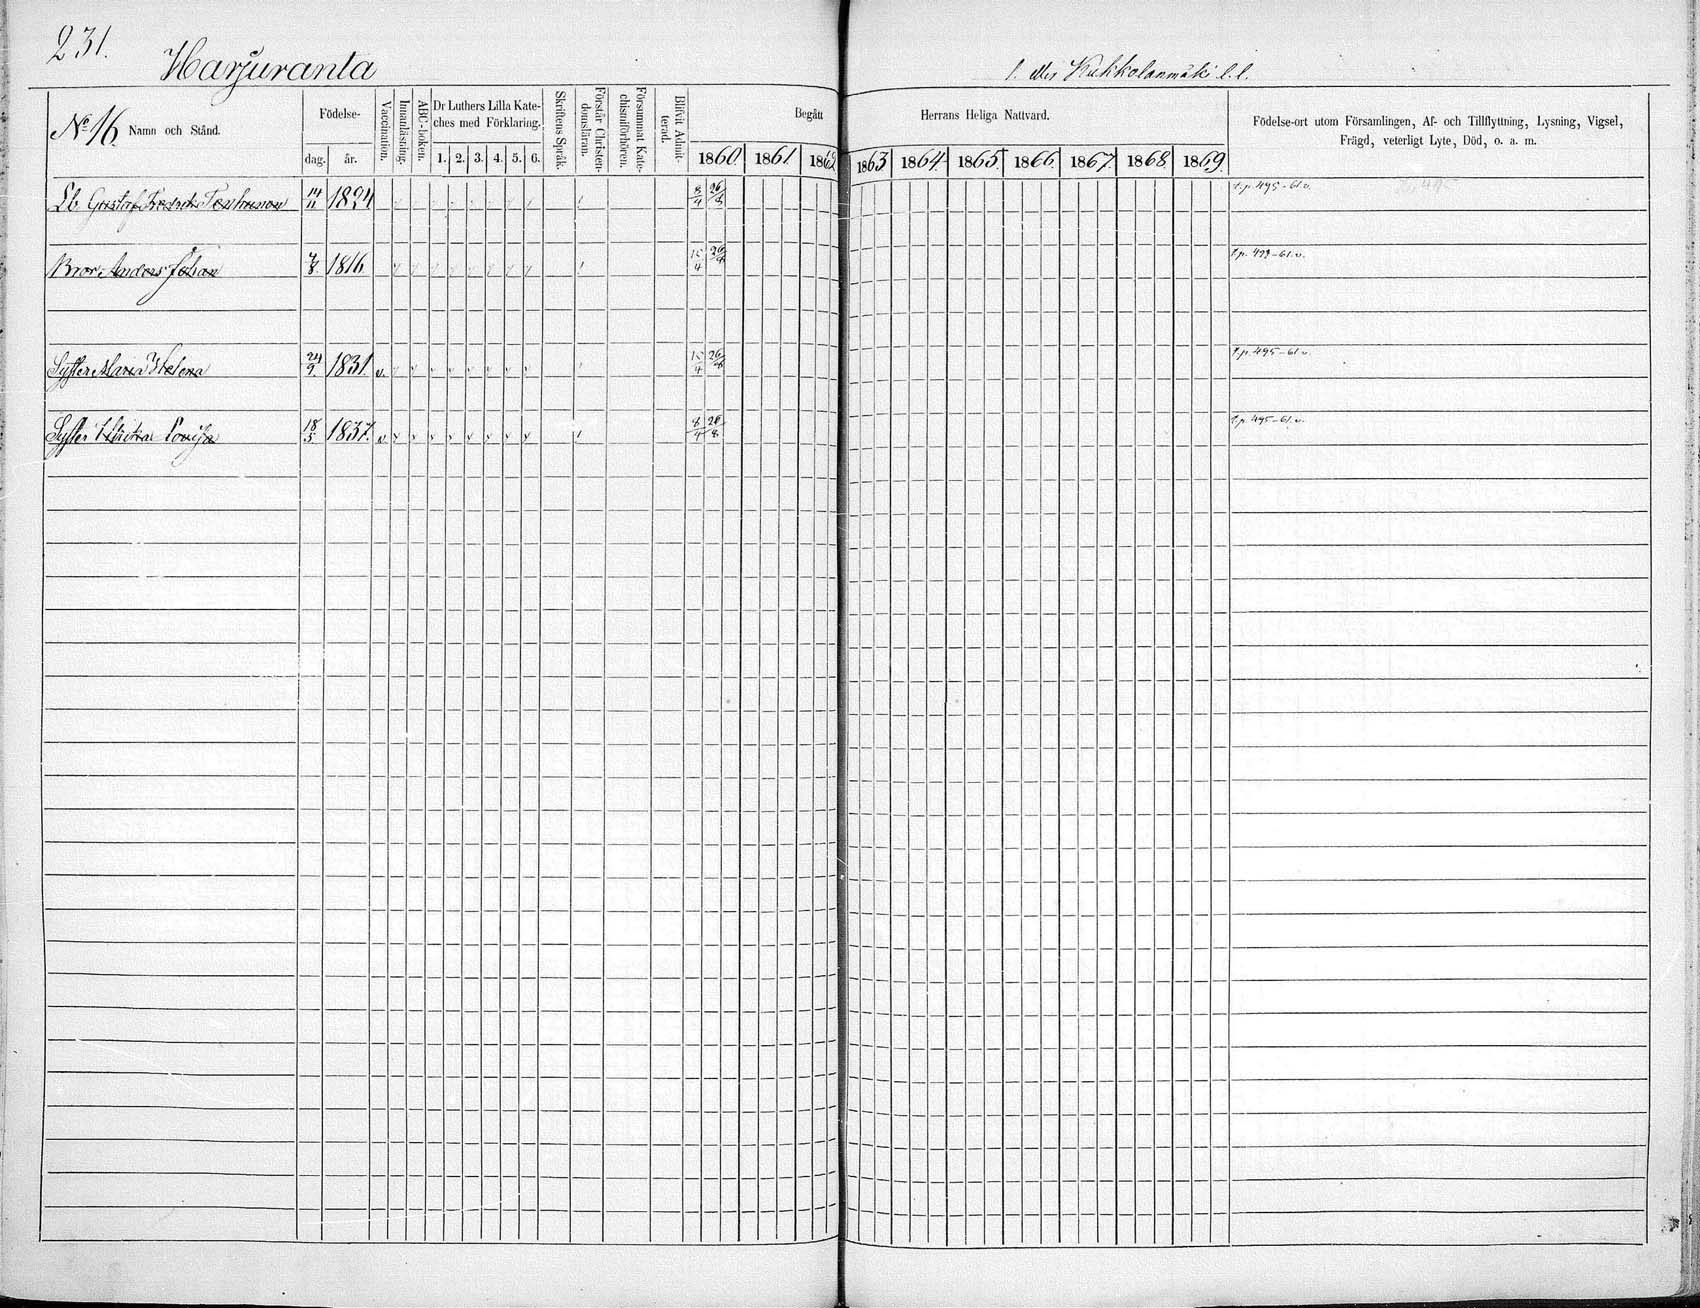 231.
Harjuranta
l. eller Kukkolanmäki l.l.
No 16. Namn och Stånd.
Födelse-
dag. år.
Vaccination.
Innanläsning.
ABC-boken.
Dr Luthers Lilla Kate-
ches med Förklaring.
1. 2. 3. 4. 5. 6.
Skriftens Språk.
Förstår Christen-
domsläran.
Försummat Kate-
chismiförhören.
Blifvit Admit-
terad.
Begått Herrans Heliga Nattvard.
1860. 1861 1862 1863 1864. 1865. 1866. 1867. 1868 1869.
Födelse-ort utom Församlingen, Af- och Tillflyttning, Lysning, Vigsel,
Frägd, veterligt Lyte, Död, o. a. m.
Lb. Gustaf Fredrik Tenhunen 14/11 1824 8/4 26/8 t.p. 495-61.v.
Bror Anders Johan 7/8. 1816 15/4 26/8 t.p. 499-61.v.
Syster Maria Helena 24/9. 1831. v. 15/4 26/8 t.p. 495-61.v.
Syster Lovisa 18/5 1837. v 8/4 26/8 t.p. 495-61.v.